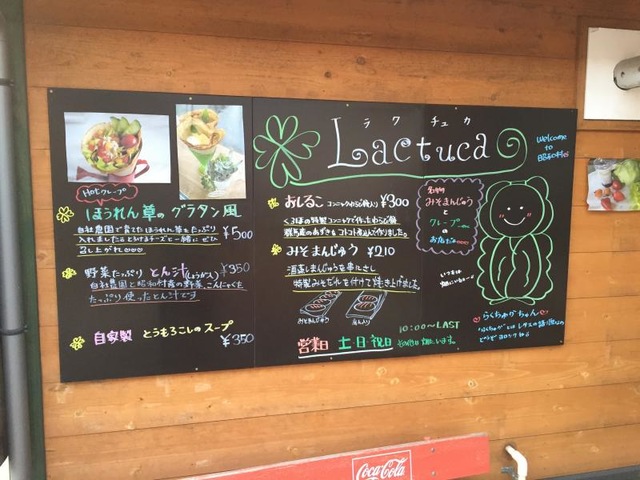 Hotクレープ
ほうれん草のグラタン風
自社農園で育てたほうれん草をたっぷり
入れました
とろけるチーズと一緒にぜひ
召し上がれ
¥500
野菜たっぷり とん汁(しょうがいり) ¥350
自社農園と昭和村産の野菜、こんにゃくを
たっぷり使ったとん汁です
自家製 とうもろこしのスープ
¥350
ラクチュカ
Lactuca
おしるこ ¥300
くるほの特製コンニャクで作ったわらび餅
コトコト煮込んで作りました。
みそまんじゅう ¥210
酒蒸しまんじゅうを串にさし
特製みそだれを付けて焼き上げました
みそまんじゅう
あん入り
10:00〜LAST
営業日 土・日・祝日
みそまんじゅう
と
クレープ
のお店
welcome
to
らくちゅかちゃん
Coca-Cola